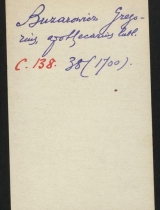 Buzarowicz Grego-
rius, apothecarius Lubl.
C. 138. 38 (1700).